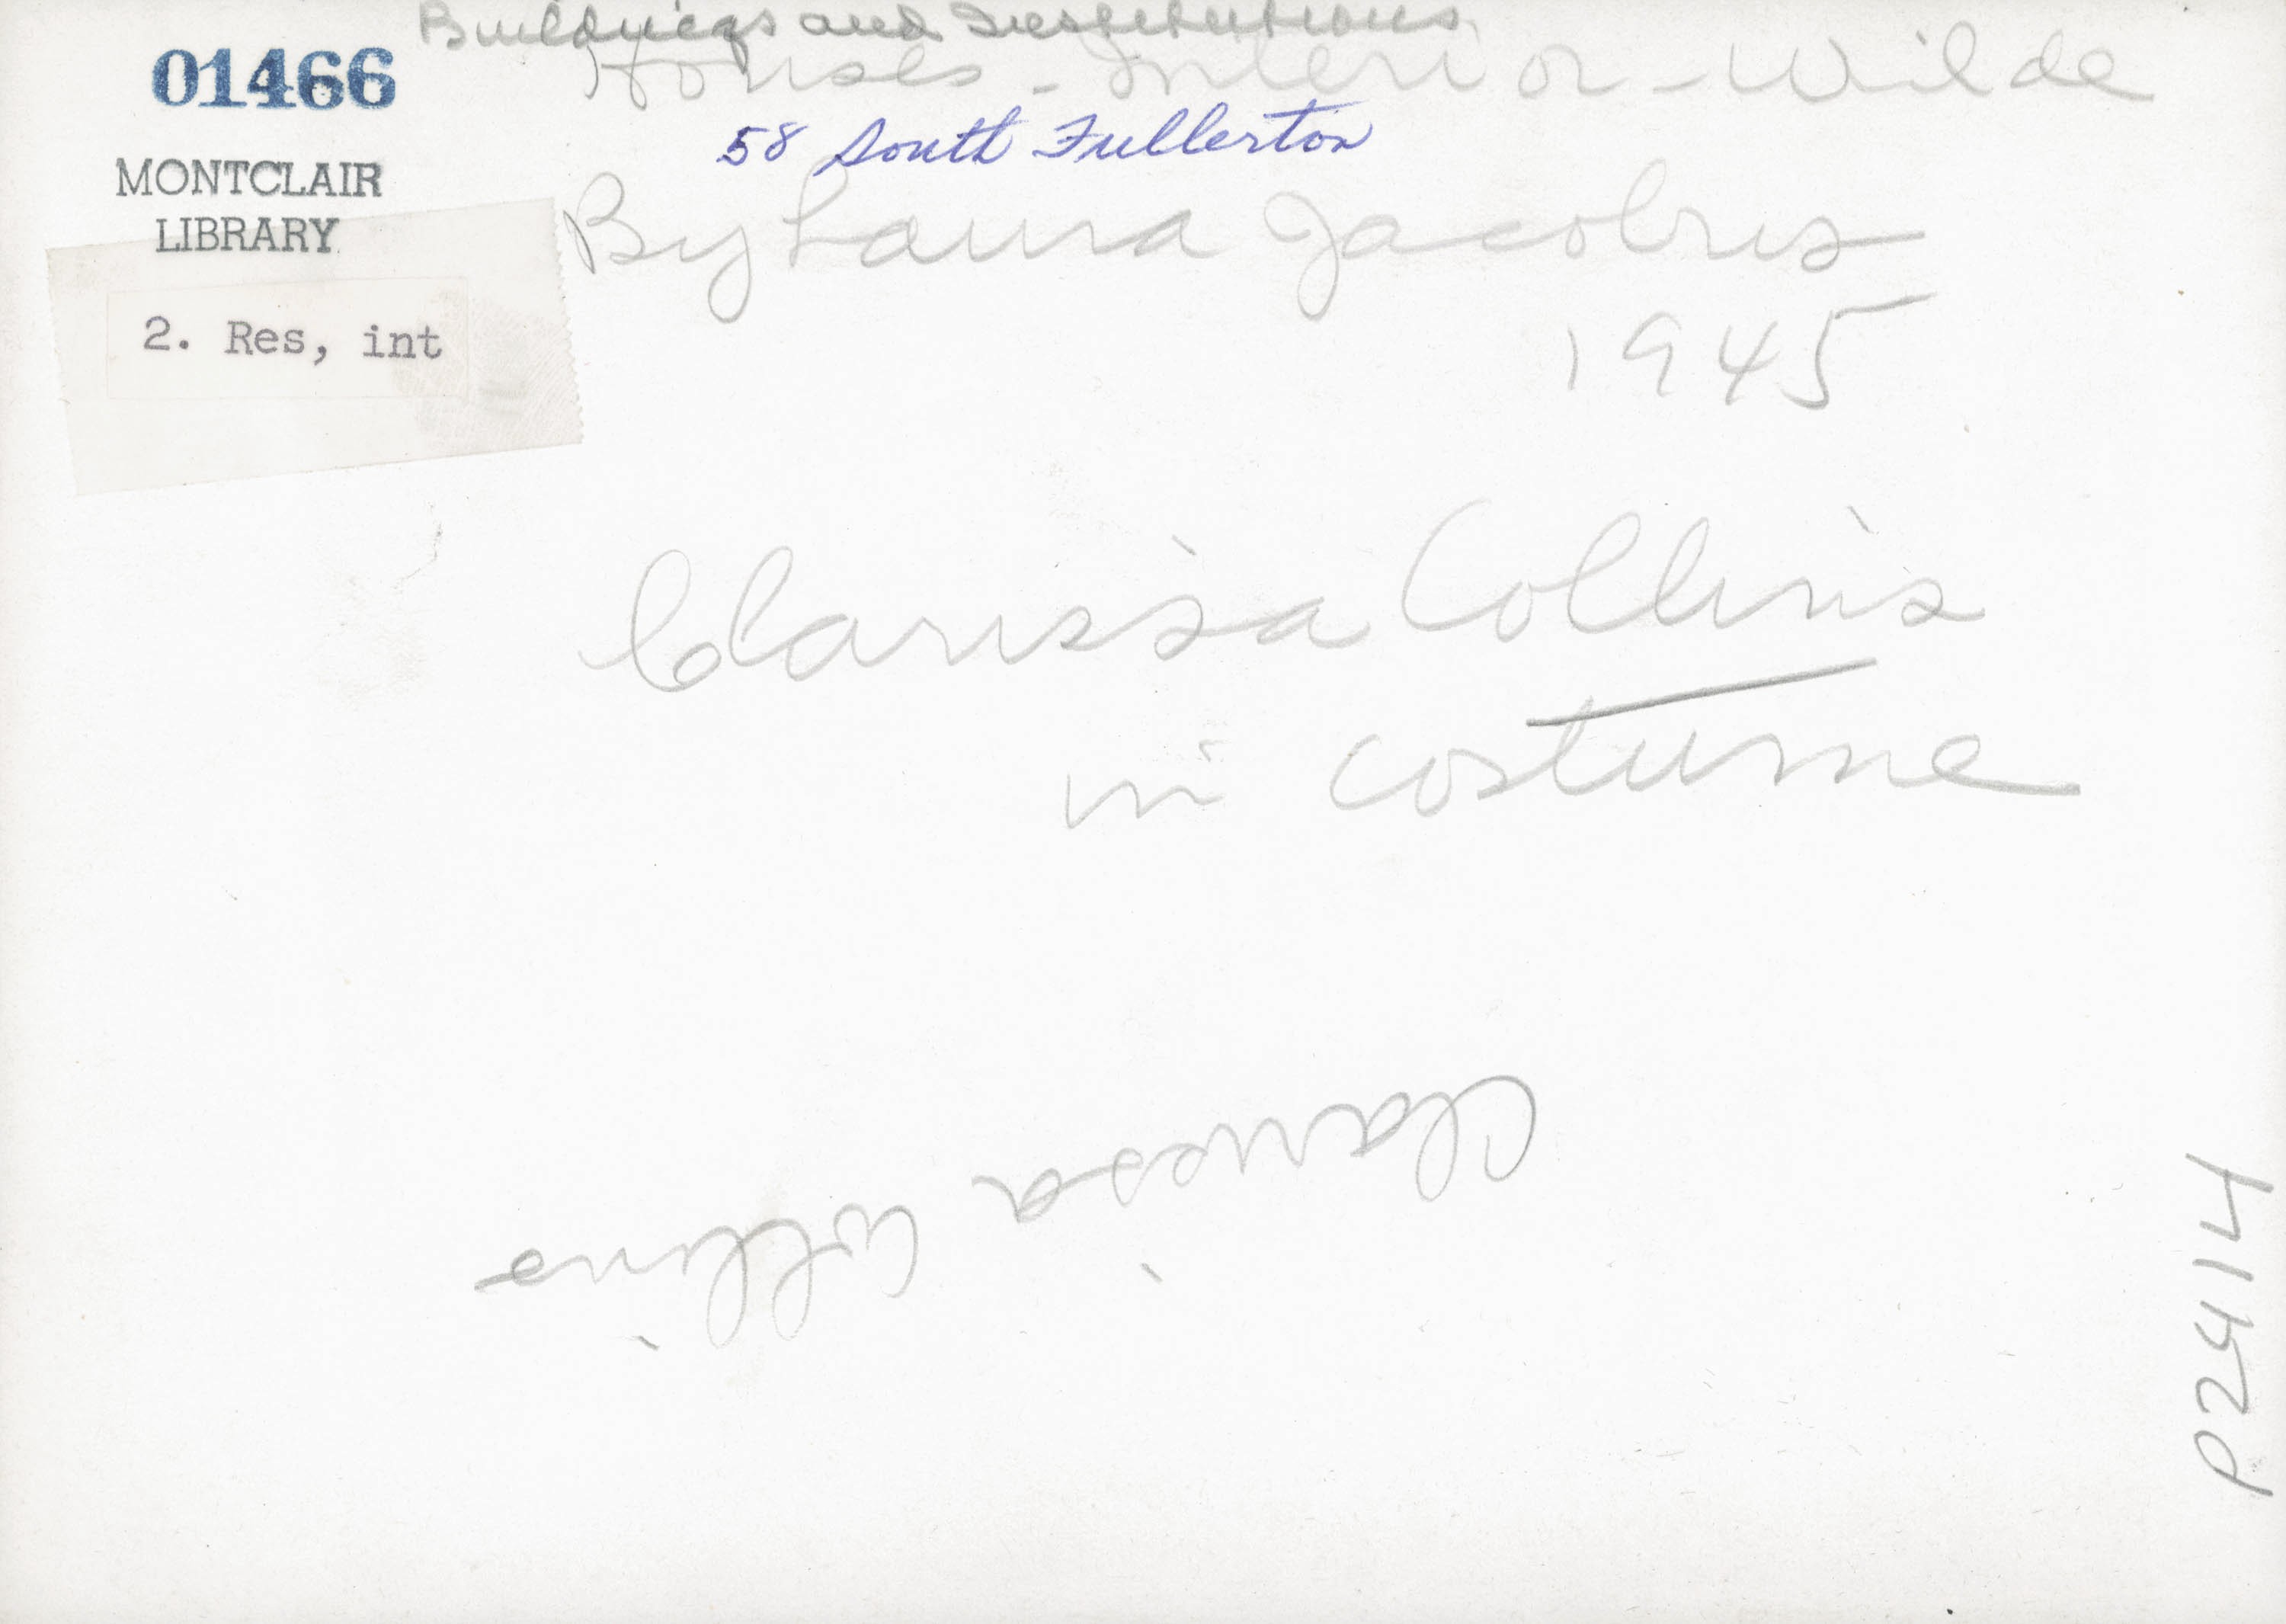 Buildings and Institutions
01466
Houses - Interior - Wilde
58 South Fullerton
MONTCLAIR
LIBRARY
By Laura Jacobus
2. Res, int
1945
Clarissa Collins
in costume
Clarissa Collins
P2414